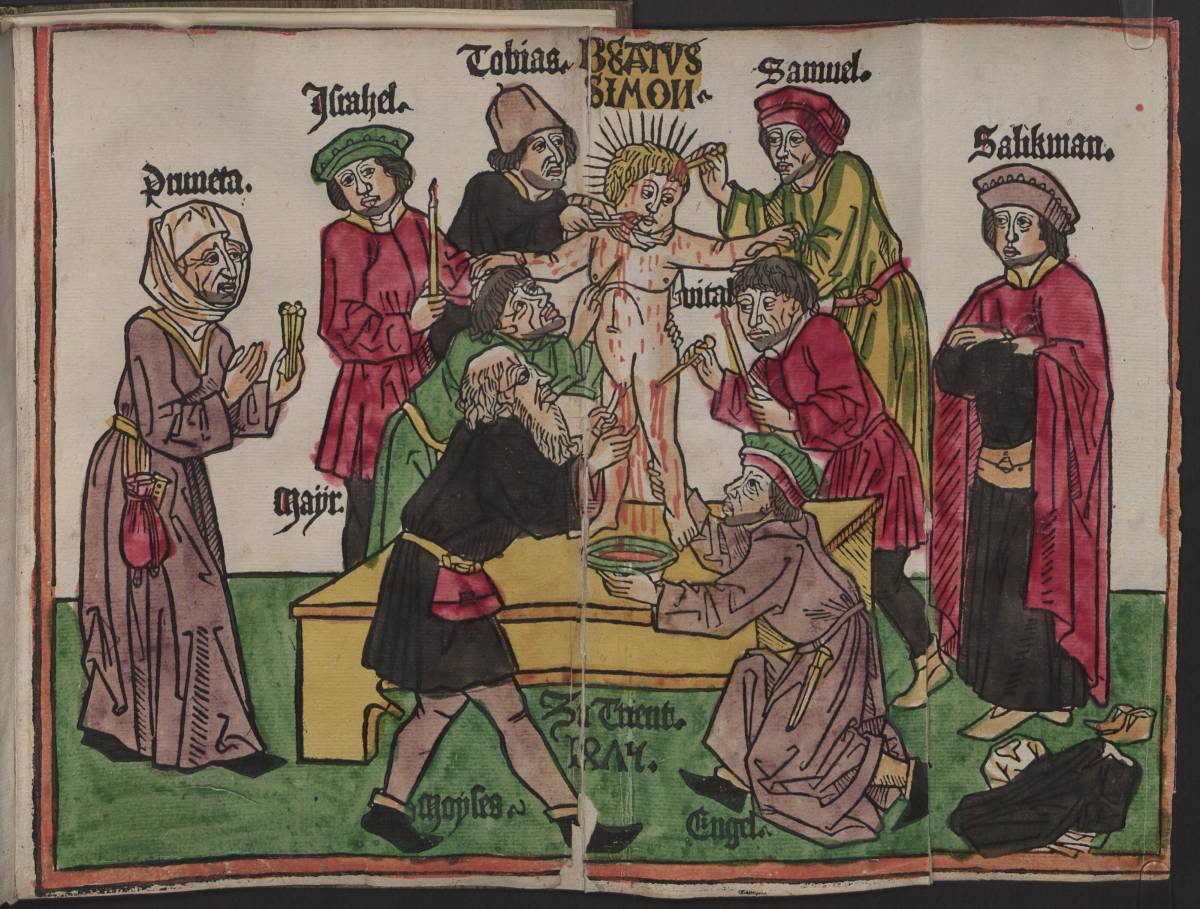 Tobias.
BEATVS
SIMON.
Samuel.
Israhel.
Salikman.
Pruneta.
vital
Maÿr.
Zu Trient.
1475.
Moyses
Engel.